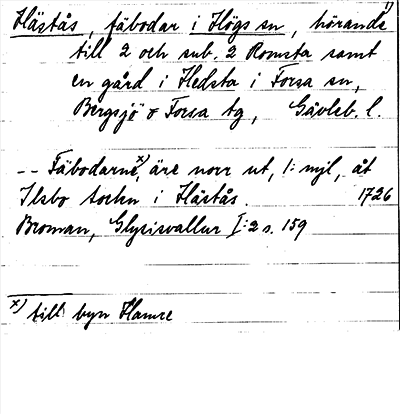 Hästås, fäbodar i Högs sn, hörande 1)
till 2 och sub. 2 Romsta samt
en gård i Hedsta i Forsa sn,
Bergsjö o Forsa tg, Gävleb. l.
-- Fäbodarne x), äre norr ut, 1: mjl, åt
Ilsbo sochn i Hästås. 1726
Broman, Glysisvallur I:2 s. 159
x) till byn Hamre